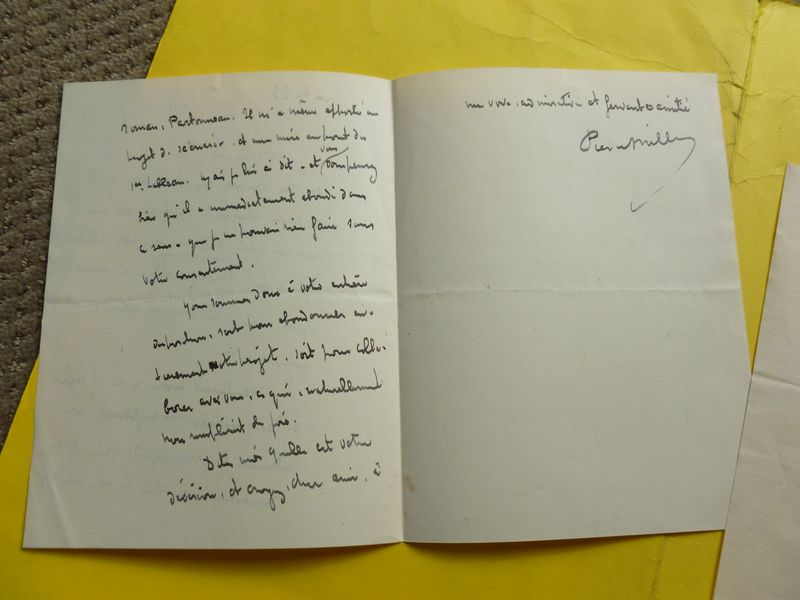 roman, Partonneau. Il m'a même apporté un
projet de scénario, et une mise au point du
1er tableau. Mais je lui ai dit - et vous pensez
bien qu'il a immédiatement abondé dans
ce sens - que je ne pouvais rien faire sans
votre consentement.
Nous sommes donc à votre entière
disposition, soit pour abandonner en-
tièrement notre projet, soit pour colla-
borer avec vous, ce qui, naturellement
nous remplirait de joie.
Dites-moi quelle est votre
décision, et croyez, cher ami, à
ma vive, admirative et fervente amitié
Pierre Mille